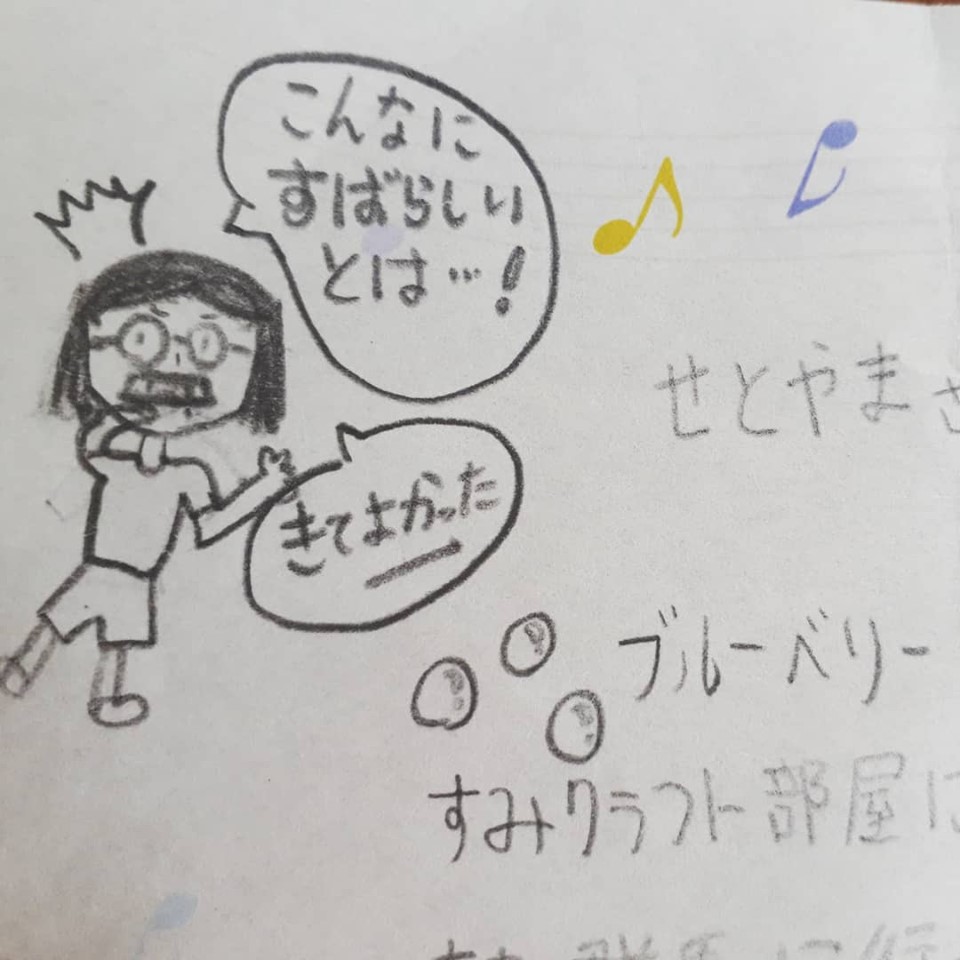 こんなに
すばらしい
とは…!
せとやま
きてよかった
ブルーベリー
すみクラフト部屋に